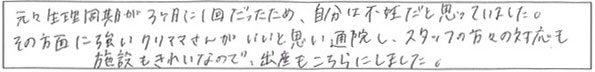 元々生理周期が3ヶ月に1回だったため、自分は不妊だと思っていました。
その方面に強いクリママさんがいいと思い通院し、スタッフの方々の対応も
施設もきれいなので、出産もこちらにしました。